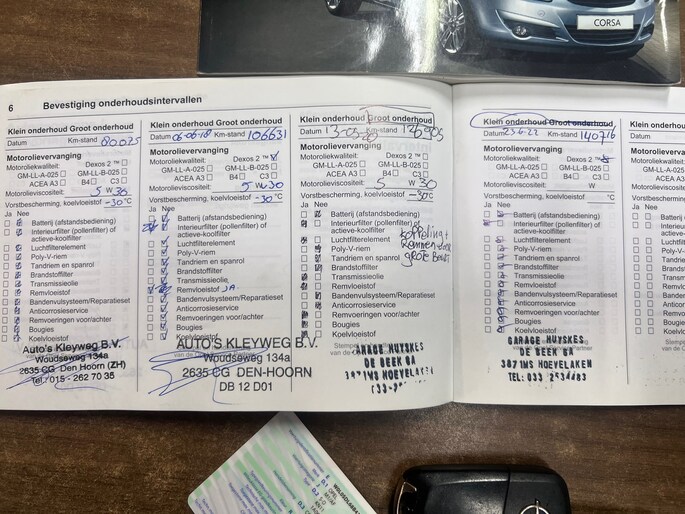 CORSA
6 Bevestiging onderhoudsintervallen
Klein onderhoud Groot onderhoud
Datum Km-stand 80025
Motorolievervanging
Motoroliekwaliteit: Dexos 2 ™
GM-LL-A-025 GM-LL-B-025
ACEA A3 B4 C3
Motorolieviscositeit: 5 W 30
Vorstbescherming, koelvloeistof -30 °C
Ja Nee
Batterij (afstandsbediening)
Interieurfilter (pollenfilter) of
actieve-koolfilter
Luchtfilterelement
Poly-V-riem
Tandriem en spanrol
Brandstoffilter
Transmissieolie
Remvloeistof
Bandenvulsysteem/Reparatieset
Anticorrosieservice
Remvoeringen voor/achter
Bougies
Koelvloeistof
Auto's Kleyweg B.V.
Woudseweg 134a
2635 CG Den Hoorn (ZH)
Tel.: 015 - 262 70 35
Klein onderhoud Groot onderhoud
Datum 06-06-18 Km-stand 106631
Motorolievervanging
Motoroliekwaliteit: Dexos 2 ™
GM-LL-A-025 GM-LL-B-025
ACEA A3 B4 C3
Motorolieviscositeit: 5 W 30
Vorstbescherming, koelvloeistof -30 °C
Ja Nee
Batterij (afstandsbediening)
Interieurfilter (pollenfilter) of
actieve-koolfilter
Luchtfilterelement
Poly-V-riem
Tandriem en spanrol
Brandstoffilter
Transmissieolie
Remvloeistof JA
Bandenvulsysteem/Reparatieset
Anticorrosieservice
Remvoeringen voor/achter
Bougies
Koelvloeistof
AUTO'S KLEYWEG B.V.
Woudseweg 134a
2635 CG DEN-HOORN
DB 12 D01
Klein onderhoud Groot onderhoud
Datum Km-stand 126905
Motorolievervanging
Motoroliekwaliteit: Dexos 2 ™
GM-LL-A-025 GM-LL-B-025
ACEA A3 B4 C3
Motorolieviscositeit: 5 W 30
Vorstbescherming, koelvloeistof -30 °C
Ja Nee
Batterij (afstandsbediening)
Interieurfilter (pollenfilter) of
actieve-koolfilter
Luchtfilterelement
Poly-V-riem
Tandriem en spanrol
Brandstoffilter
Transmissieolie
Remvloeistof
Bandenvulsysteem/Reparatieset
Anticorrosieservice
Remvoeringen voor/achter
Bougies
Koelvloeistof
koppeling +
grote Beurt
GARAGE HUYSKES
DE BEEK 6A
3871MS HOEVELAKEN
Klein onderhoud Groot onderhoud
Datum 23.6.22 Km-stand 140716
Motorolievervanging
Motoroliekwaliteit: Dexos 2 ™
GM-LL-A-025 GM-LL-B-025
ACEA A3 B4 C3
Motorolieviscositeit: W
Vorstbescherming, koelvloeistof °C
Ja Nee
Batterij (afstandsbediening)
Interieurfilter (pollenfilter) of
actieve-koolfilter
Luchtfilterelement
Poly-V-riem
Tandriem en spanrol
Brandstoffilter
Transmissieolie
Remvloeistof
Bandenvulsysteem/Reparatieset
Anticorrosieservice
Remvoeringen voor/achter
Bougies
Koelvloeistof
GARAGE HUYSKES
DE BEEK 6A
3871MS HOEVELAKEN
TEL: 033 2534483
Klein onderhoud
Datum
Motorolievervanging
Ja Nee